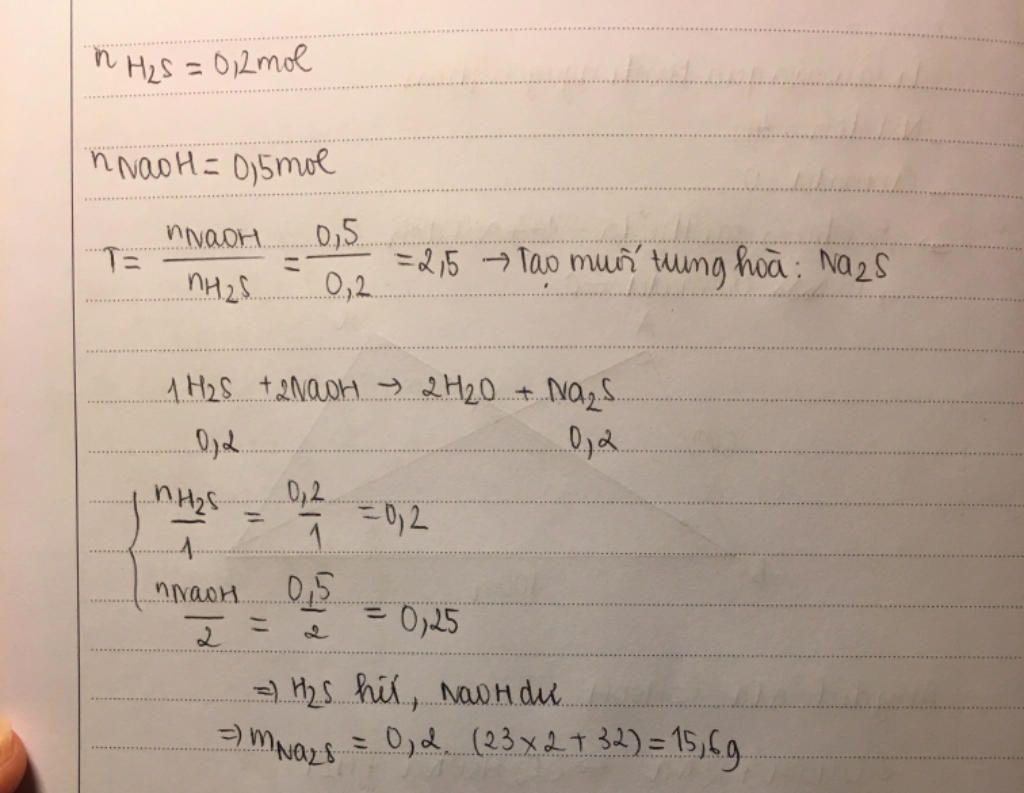 n H2S = 0,2mol
nNaOH = 0,5mol
T = nNaOH / nH2S = 0,5 / 0,2 = 2,5 → Tạo muối trung hoà : Na2S
1H2S + 2NaOH → 2H2O + Na2S
0,2 0,2
nH2S / 1 = 0,2 / 1 = 0,2
nNaOH / 2 = 0,5 / 2 = 0,25
⇒ H2S hết, NaOH dư
⇒ mNa2S = 0,2. (23 x 2 + 32) = 15,6g